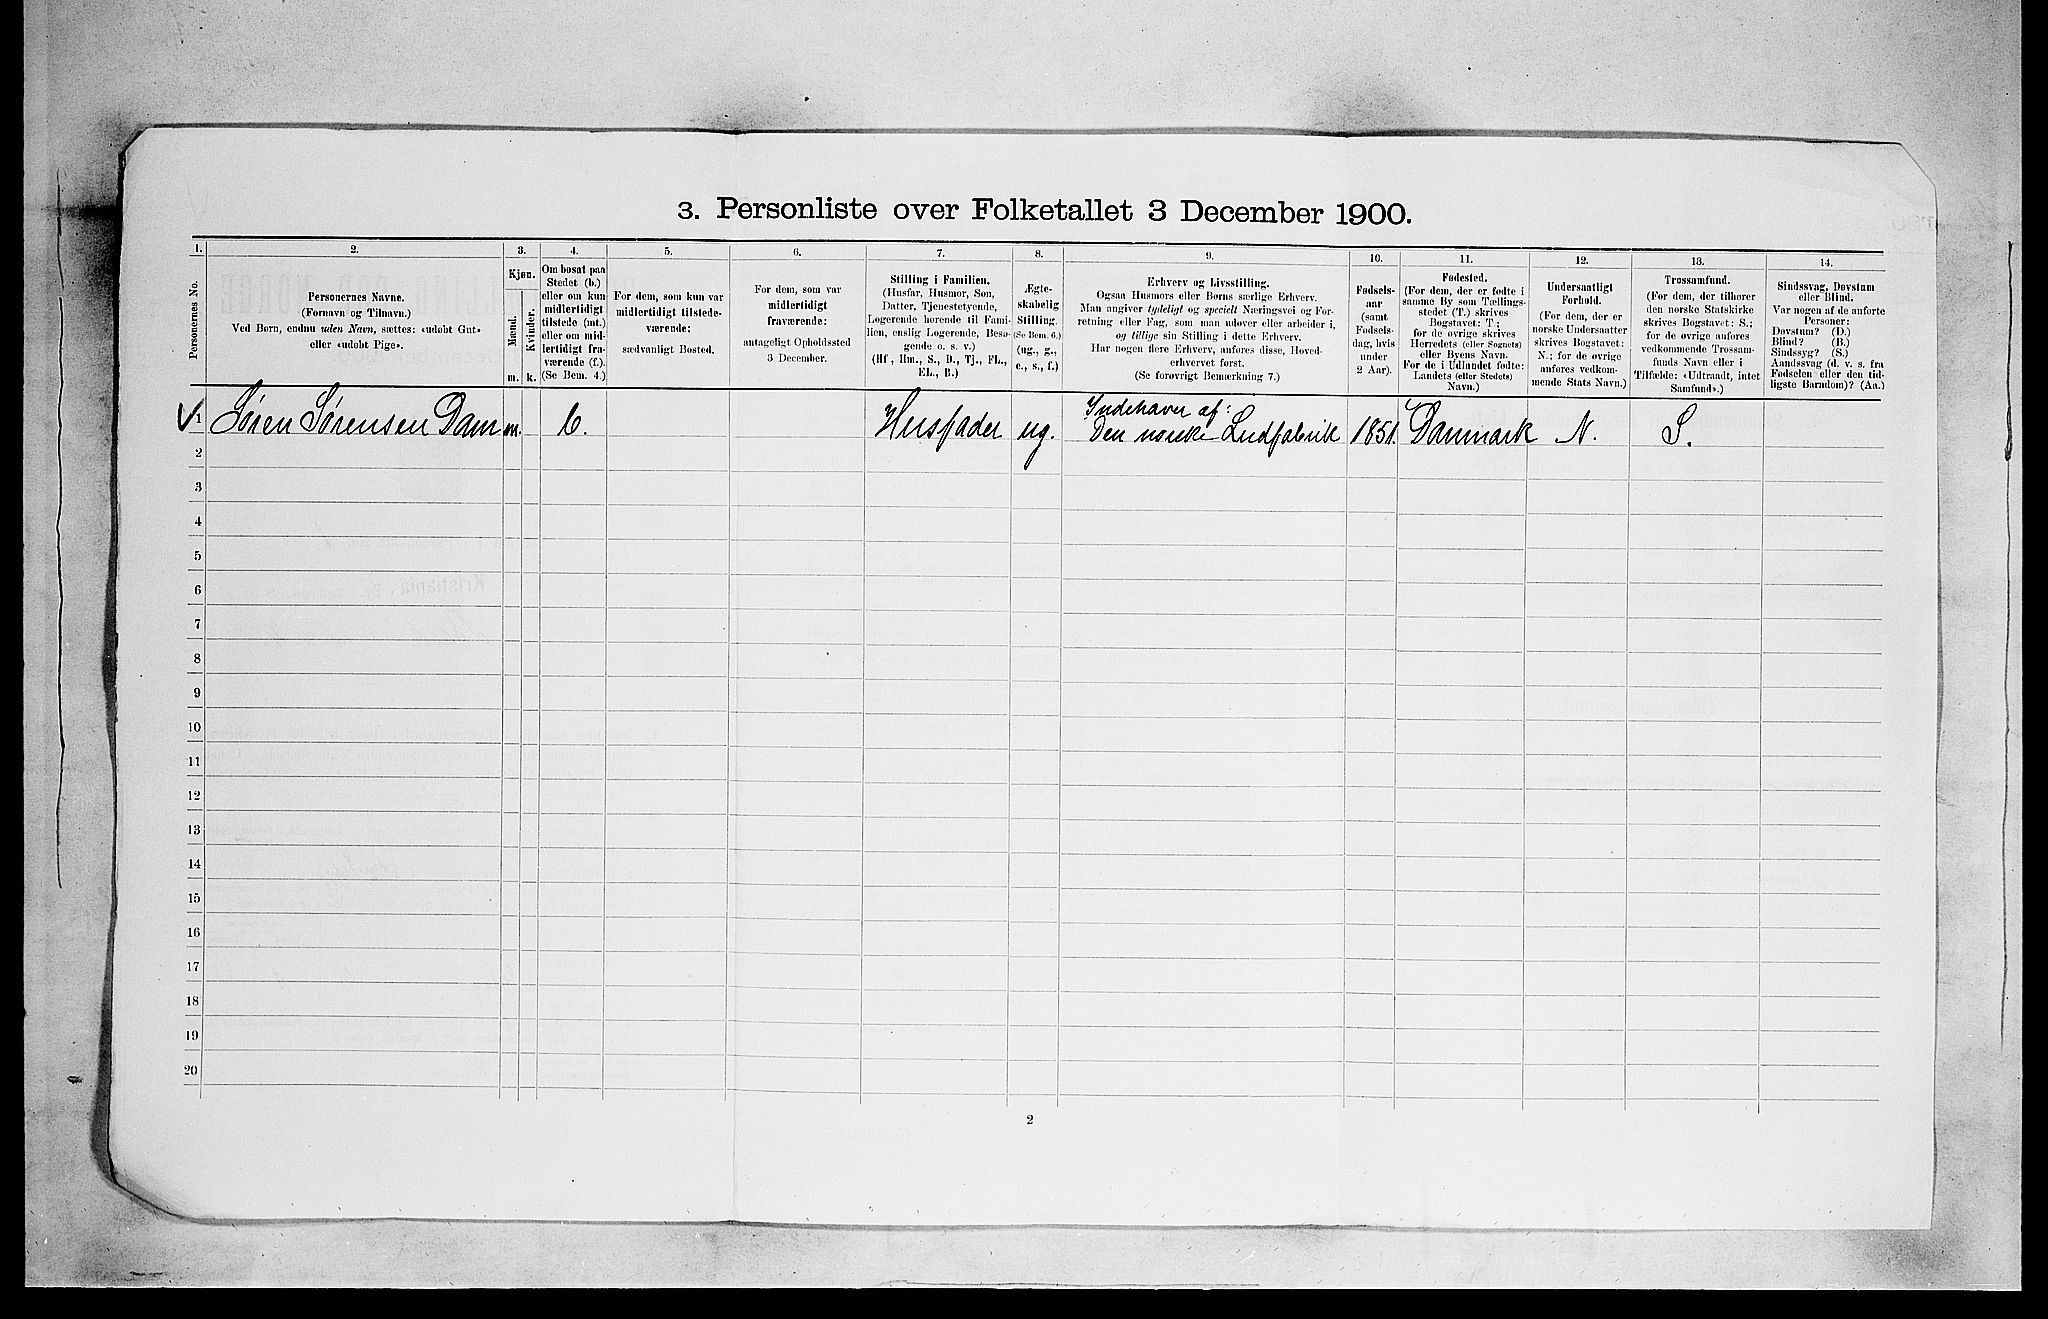 3. Personliste over Folketallet 3 December 1900.
1.
Personernes No.
2.
Personernes Navne.
(Fornavn og Tilnavn.)
Ved Børn, endnu uden Navn, sættes: «udøbt Gut»
eller «udøbt Pige».
3.
Kjøn.
Mænd.
Kvinder.
m.
k.
4.
Om bosat paa
Stedet (b.)
eller om kun
midlertidigt
tilstede (mt.)
eller om mid-
lertidigt fra-
værende (f.).
(Se Bem. 4.)
5.
For dem, som kun var
midlertidigt tilstede-
værende:
sædvanligt Bosted.
6.
For dem, som var
midlertidigt
fraværende:
antageligt Opholdssted
3 December.
7.
Stilling i Familien.
(Husfar, Husmor, Søn,
Datter, Tjenestetyende,
Logerende hørende til Fami-
lien, enslig Logerende, Besø-
gende o. s. v.)
(Hf., Hm., S., D., Tj., FL.,
EL., B.)
8.
Ægte-
skabelig
Stilling.
(Se Bem. 6.)
(ug., g.,
e., s., f.)
9.
Erhverv og Livsstilling.
Ogsaa Husmors eller Børns særlige Erhverv.
Man angiver tydeligt og specielt Næringsvei og For-
retning eller Fag, som man udøver eller arbeider i,
og tillige sin Stilling i dette Erhverv.
Har nogen flere Erhverv, anføres disse, Hoved-
erhvervet først.
(Se forøvrigt Bemærkning 7.)
10.
Fødsels-
aar
(samt
Fødsels-
dag, hvis
under
2 Aar).
11.
Fødested.
(For dem, der er fødte i
samme By som Tællings-
stedet (T.) skrives
Bogstavet: T.;
for de øvrige skrives
Herredets (eller Sognets)
eller Byens Navn.
For de i Udlandet fødte:
Landets (eller Stedets)
Navn.)
12.
Undersaatligt
Forhold.
(For dem, der er
norske Undersaatter
skrives Bogstavet:
N.; for de øvrige
anføres vedkom-
mende Stats Navn.)
13.
Trossamfund.
(For dem, der tilhører
den norske Statskirke
skrives Bogstavet: S.;
for de øvrige anføres
vedkommende Trossam-
funds Navn eller i
Tilfælde: «Udtraadt, intet
Samfund».)
14.
Sindssvag, Døvstum
eller Blind.
Var nogen af de anførte
Personer:
Døvstum? (D.)
Blind? (B.)
Sindssyg? (S.)
Aandssvag (d. v. s. fra
Fødselen eller den tid-
ligste Barndom)? (Aa.)
1 Søren Sørensen Dam m. b. Husfader ug. Indehaver af: Den norske Ludfabrik 1851. Danmark N. S.
2
3
4
5
6
7
8
9
10
11
12
13
14
15
16
17
18
19
20
2